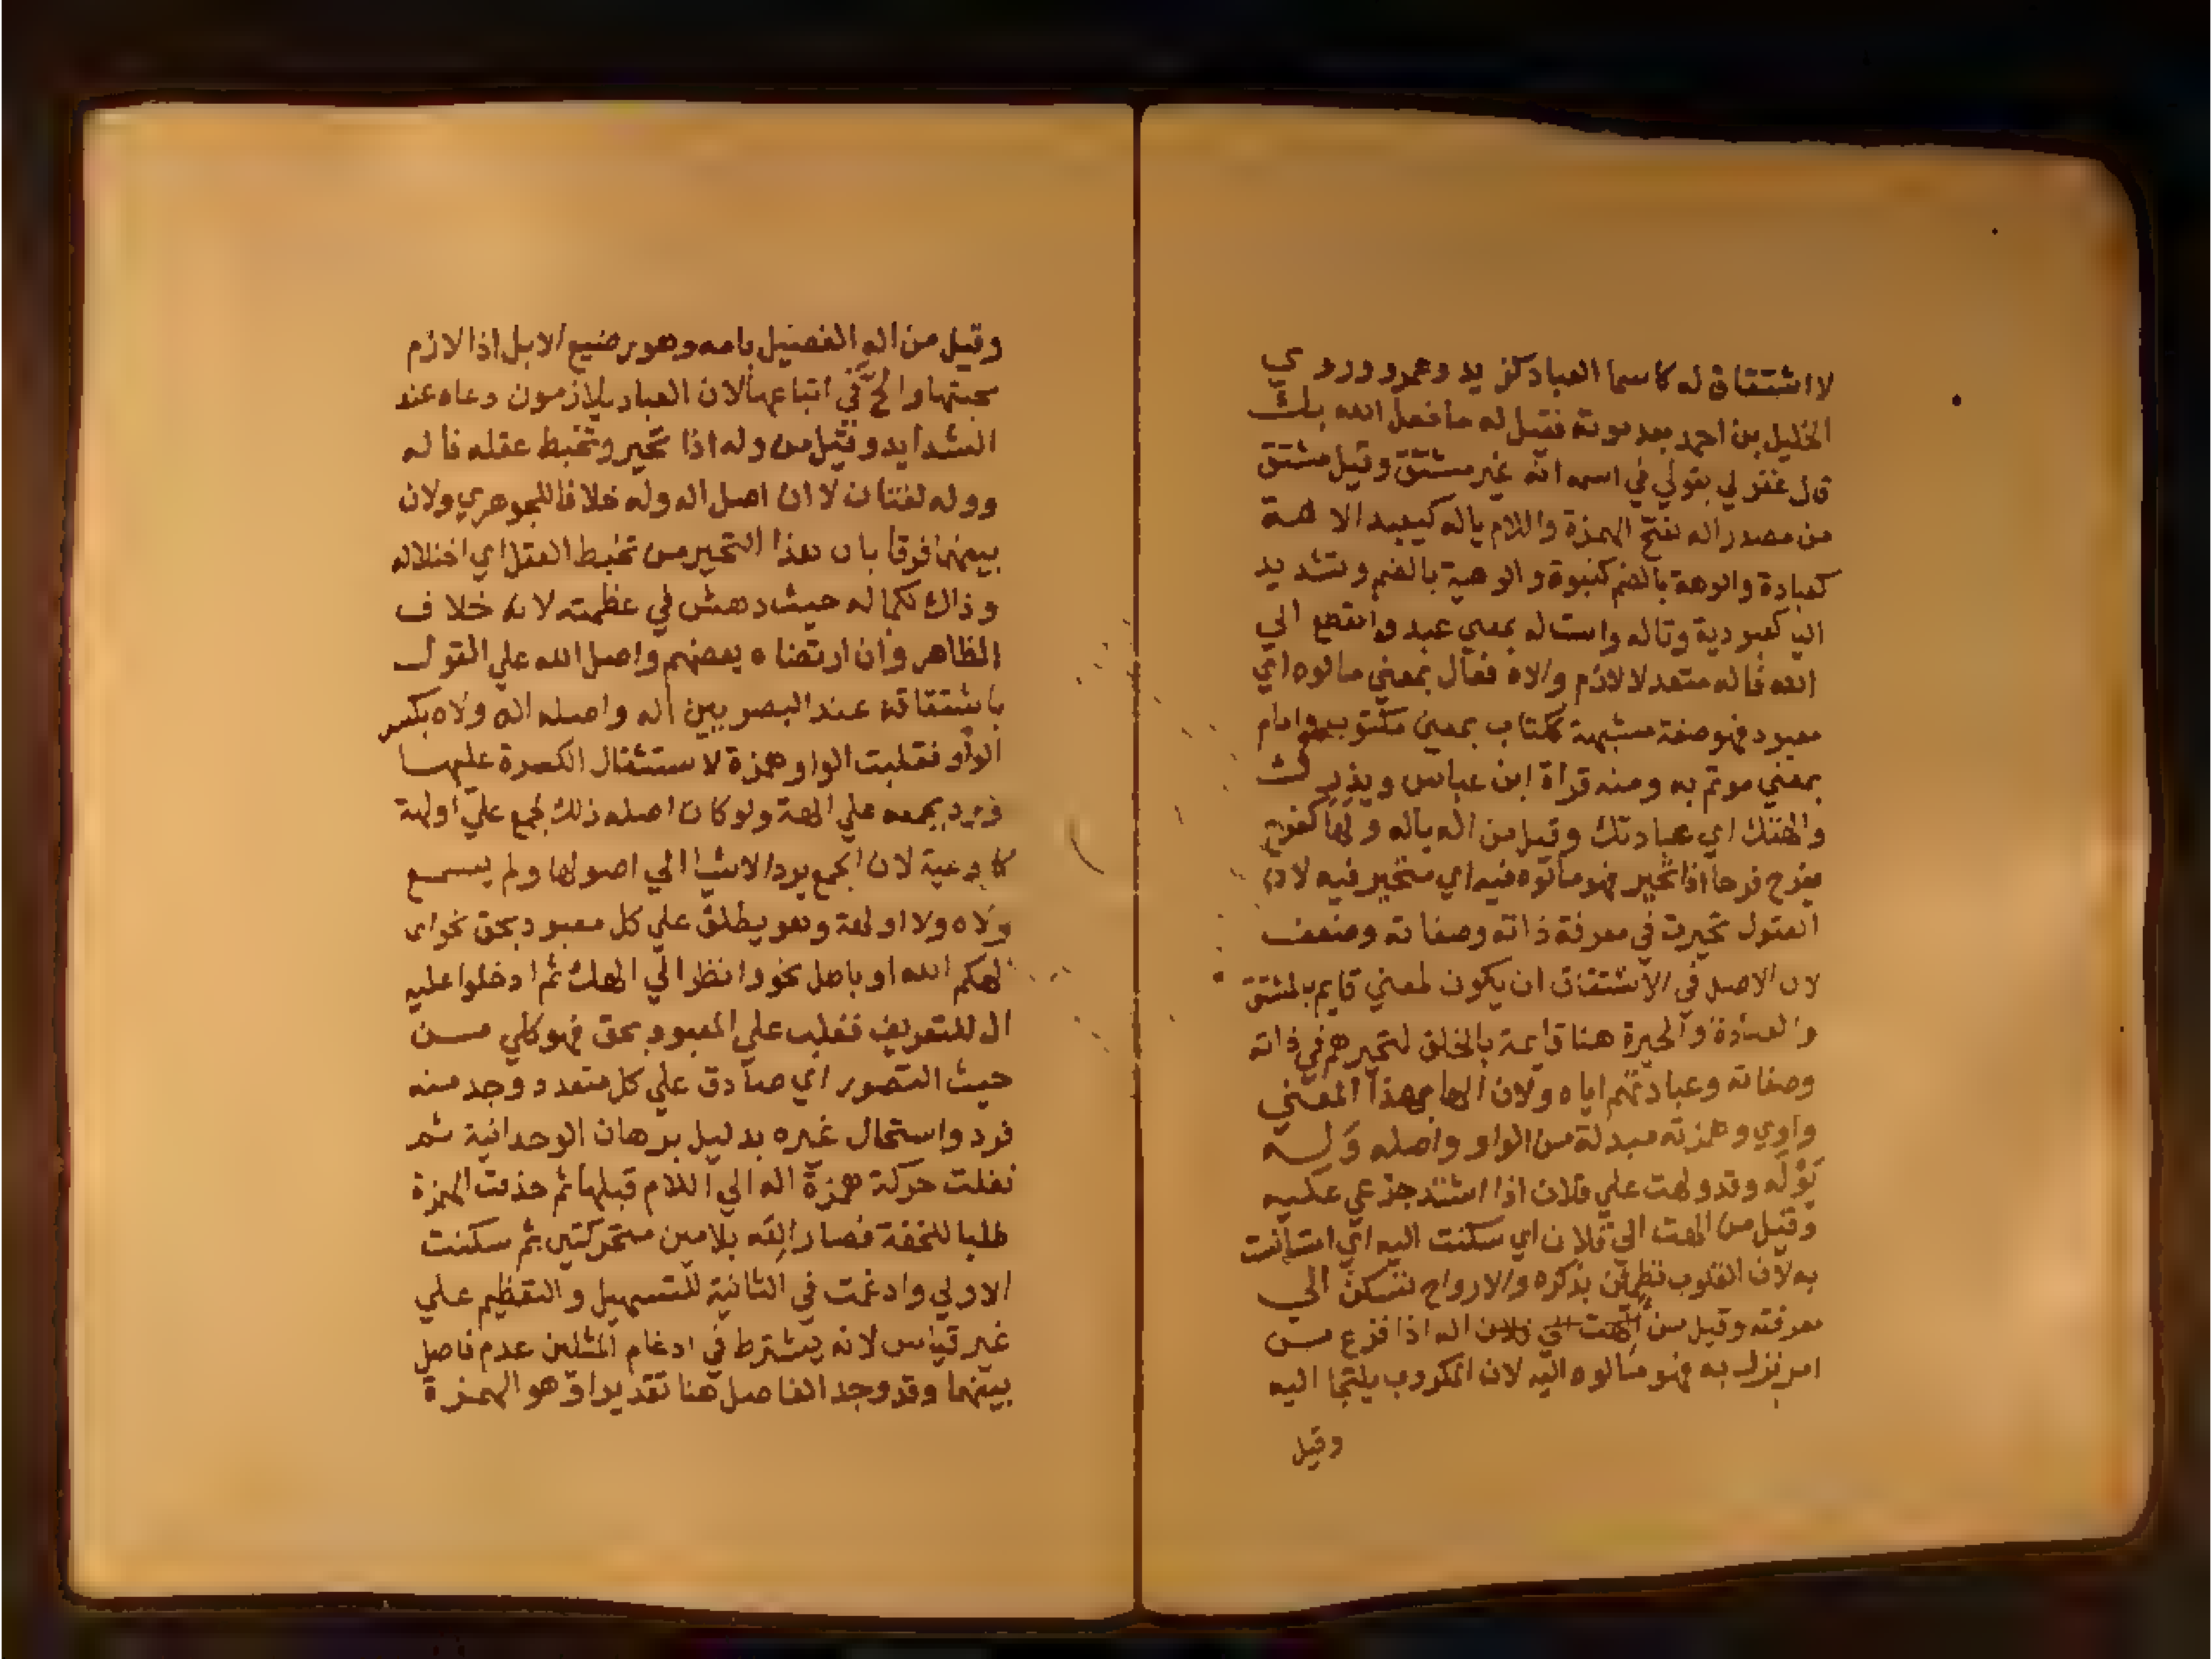 لا اشتقاق له كاسما العباد كزيد وعمرو وروي
الخليل بن احمد بعد موته فقيل له ما فعل الله بك
قال غفر لي بقولي في اسمه انه غير مشتق وقيل مشتق
من مصدر اله بفتح الهمزة واللام ياله كيعبد الاهة
كعبادة والوهة بالضم كنبوة والوهية بالضم وتشديد
اليا كعبودية وتاله واستاله بمعني عبد وانقطع الي
الله فاله متعد لا لازم والاه فعال بمعني مالوه اي
معبود فهو صفة مشبهة ككتاب بمعني مكتوب وامام
بمعني موتم به ومنه قراة ابن عباس ويذرك
والهتك اي عبادتك وقيل من اله ياله ولها كفرح
يفرح فرحا اذا تحير فهو مالوه فيه اي متحير فيه لان
العقول تحيرت في معرفة ذاته وصفاته وضعف
لان الاصل في الاشتقاق ان يكون لمعني قايم بالمشتق
والعبادة والحيرة هنا قايمة بالخلق لتحيرهم في ذاته
وصفاته وعبادتهم اياه ولان الها بهذا المعني
واوي وهمزته مبدلة من الواو واصله وَلِه
يَوْلَه وقد ولهت علي فلان اذا اشتد جزعي عليه
وقيل من الهت الي فلان اي سكنت اليه اي استانست
به لان القلوب تطمئن بذكره والارواح تسكن الي
معرفته وقيل من الهت الي فلان اله اذا فزع من
امر نزل به فهو مالوه اليه لان المكروب يلتجا اليه
وقيل
وقيل من اله الفصيل بامه وهو رضيع الابل اذا لازم
محبتها والحّ في اتباعها لان العباد يلازمون دعاه عند
الشدايد وقيل من وله اذا تحير وتخبط عقله فاله
ووله لغتان لا ان اصل اله وله خلافا للجوهري ولان
بينهما فرقا بان هذا التحير من تخبط العقل اي اختلاله
وذاك لكماله حيث دهش في عظمته لانه خلاف
الظاهر وان ارتضاه بعضهم واصل الله علي القول
باشتقاقه عند البصريين اله واصله اله ولاه بكسر
الواو فقلبت الواو همزة لاستثقال الكسرة عليها
فرد بجمعه علي الهة ولو كان اصله ذلك لجمع علي اولهة
كاوعية لان الجمع يرد الاشيا الي اصولها ولم يسمع
ولاه ولا اولهة وهو يطلق علي كل معبود بحق نحو اي
لهكم الله او باطل نحو وانظر الي الهك ثم ادخلوا عليه
ال للتعريف فغلب علي المعبود بحق فهو كلي من
حيث التصور اي صادق علي كل متعدد وجد منه
فرد واستحال غيره بدليل برهان الوحدانية ثم
نقلت حركة همزة اله الي اللام قبلها ثم حذفت الهمزة
طلبا للخفة فصار اللِله بلامين متحركتين ثم سكنت
الاولي وادغمت في الثانية للتسهيل والتعظيم علي
غير قياس لانه يشترط في ادغام المثلين عدم فاصل
بينهما وقد وجد الفاصل هنا تقديرا وهو الهمزة